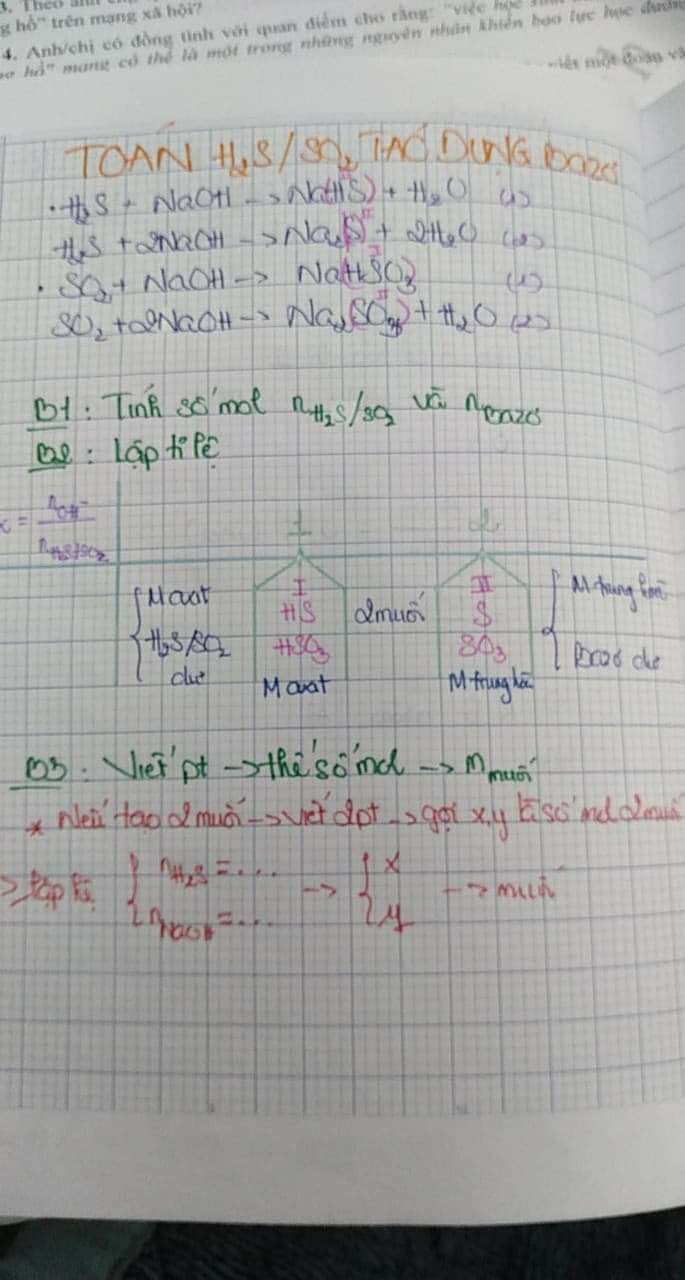 3. Theo
g hồ" trên mạng xã hội?
4. Anh/chị có đồng tình với quan điểm cho rằng: "việc học
hồ" mạng có thể là một trong những nguyên nhân khiến bạo lực học đường
viết một đoạn vă
TOÁN H₂S/SO₂ TÁC DỤNG bazơ
• H₂S + NaOH → Na(HS) + H₂O (1)
H₂S + 2NaOH → Na₂(S)ᴵᴵ + 2H₂O (2)
• SO₂ + NaOH → Na(HSO₃)ᴵ (1)
SO₂ + 2NaOH → Na₂(SO₃)ᴵᴵ + H₂O (2)
B1 : Tính số mol n H₂S/SO₂ và n bazơ
B2 : Lập tỉ lệ
x = nOH⁻ / nH₂S/SO₂
1 2
{ M axit H₂S/SO₂ dư
I HS HSO₃ M axit
2 muối
II S SO₃ M trung hòa
{ M trung hòa Bazơ dư
B3 : Viết pt → thế số mol → m muối
* Nếu tạo 2 muối → viết 2pt → gọi x, y là số mol 2 muối
→ lập hệ { nH₂S = .... nNaOH = ... → { x y → muối